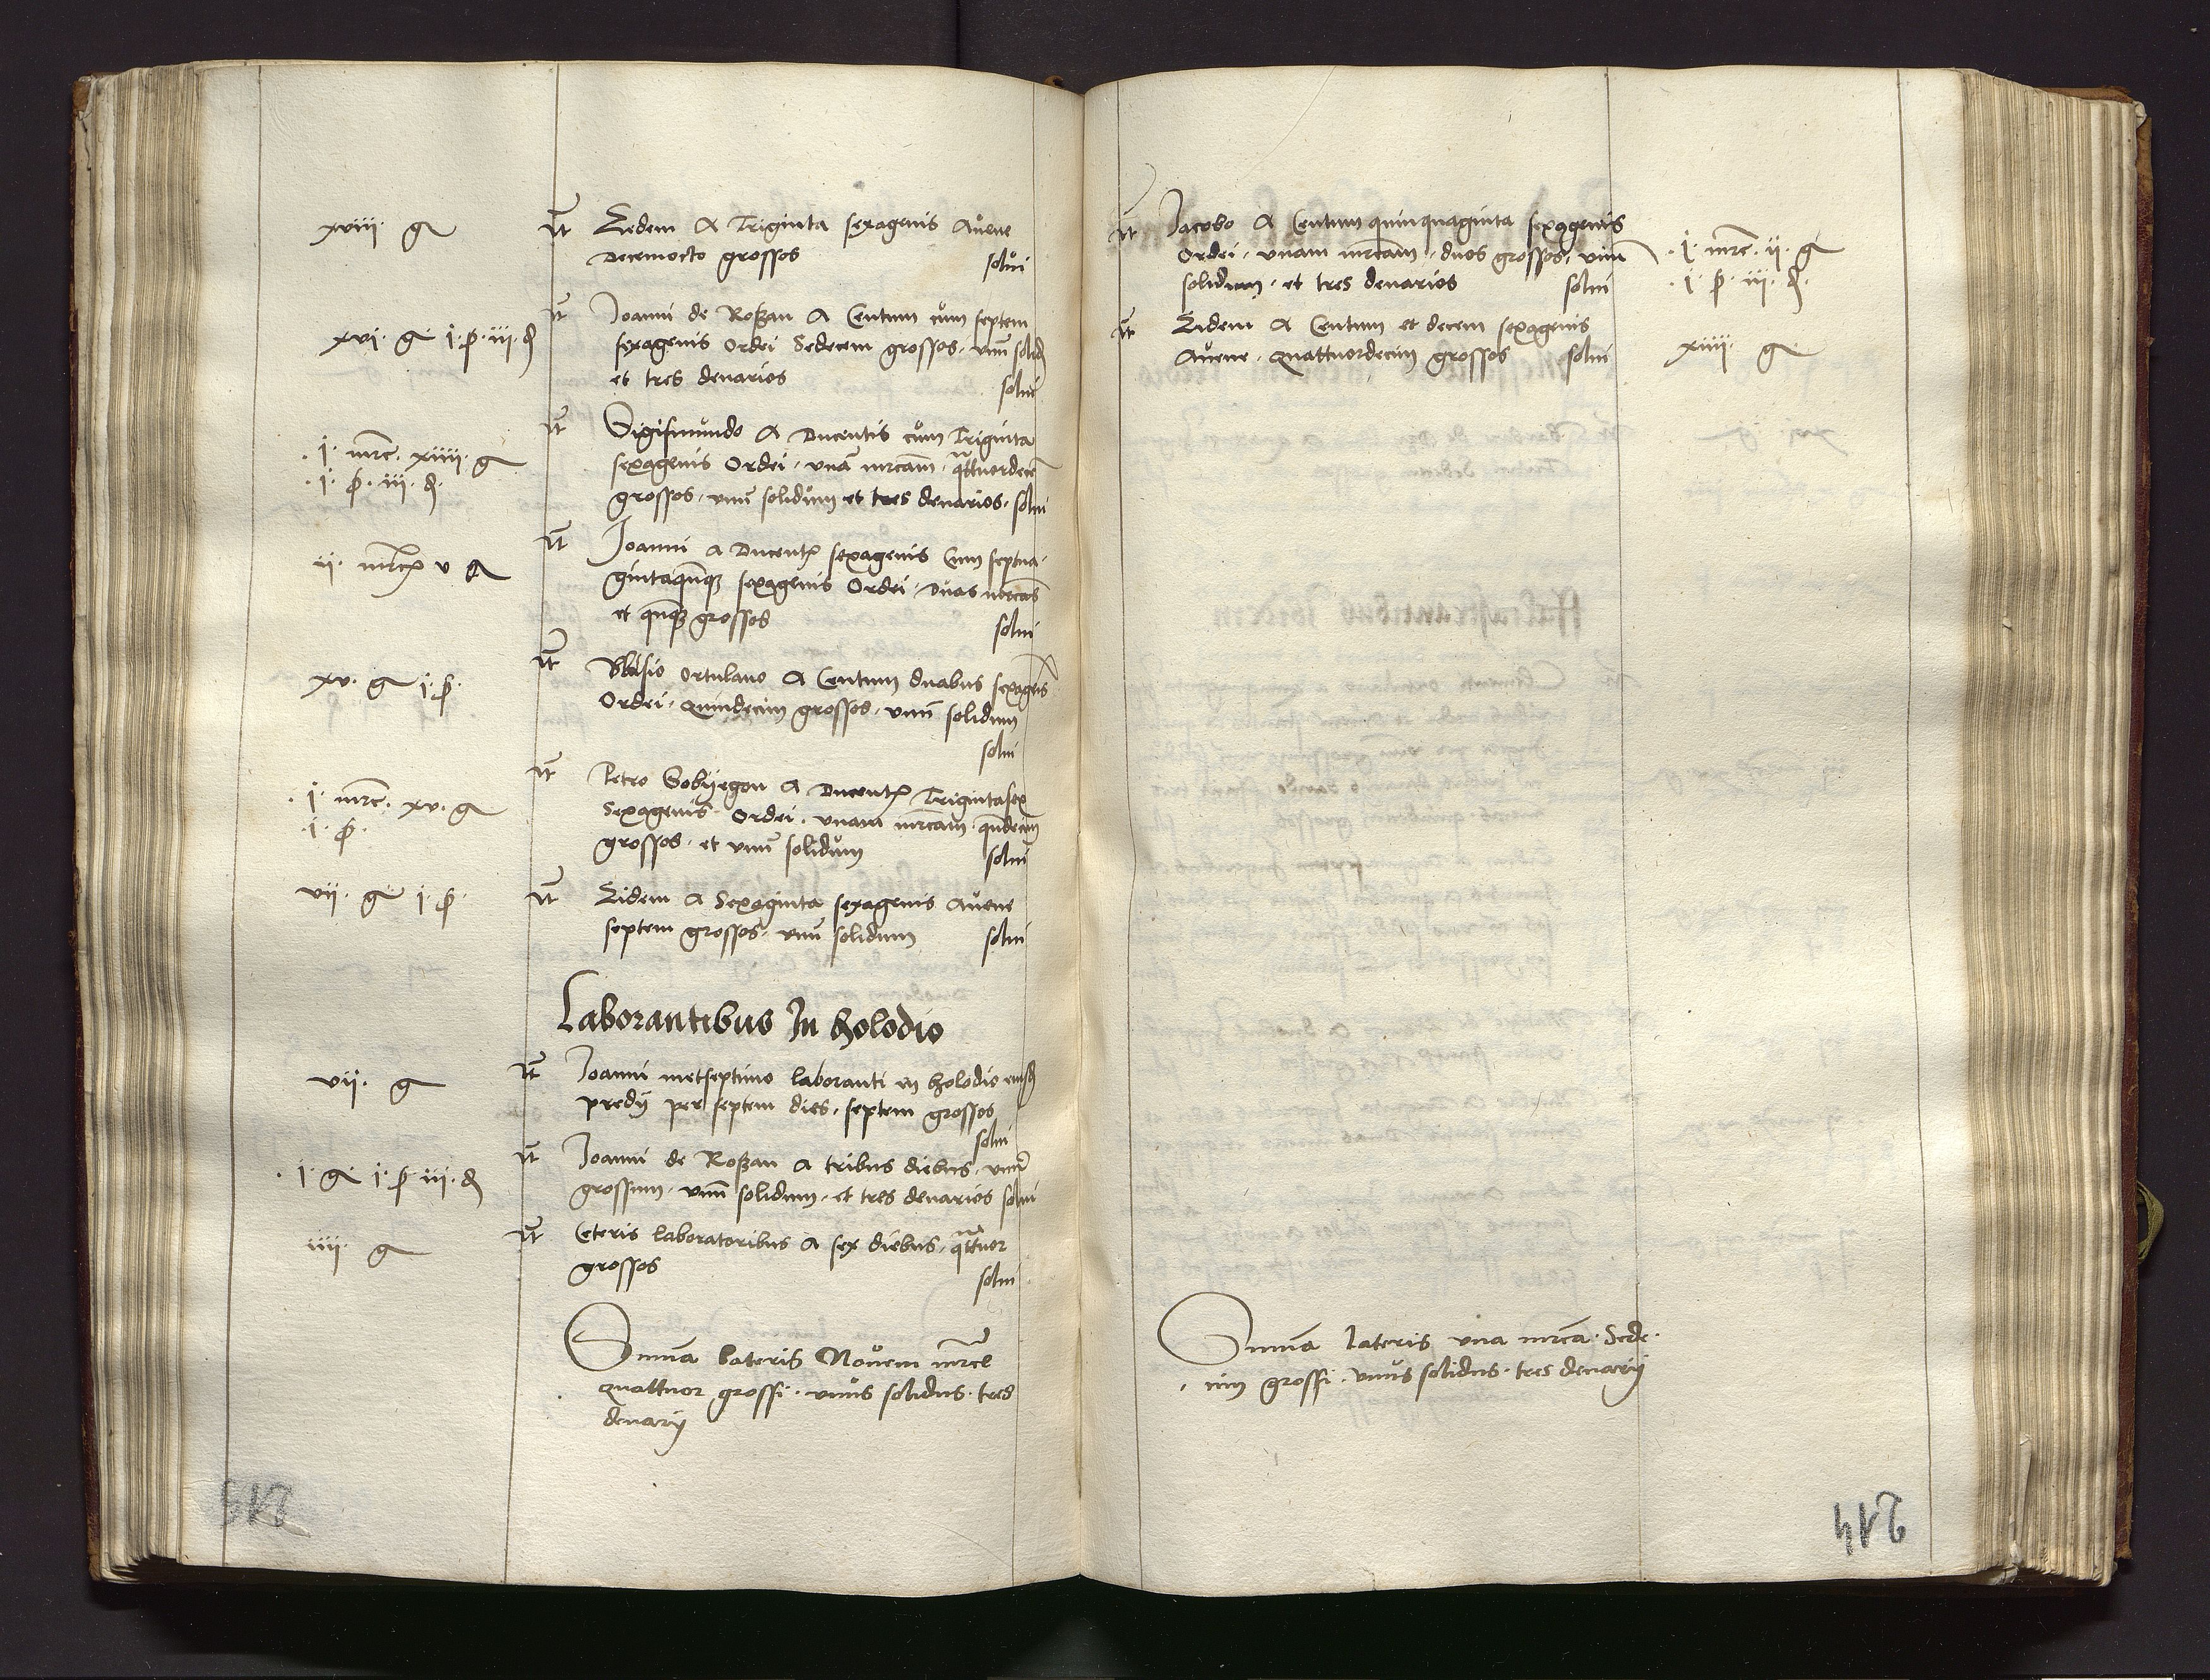 xviii · g
Itē Eedem A Triginta sexagenis Auene
Decemocto grossos solui
xvi · g · i · ꝭ · iii · d
Itē Joanni de Roßzan A Centum cum septem
sexagenis Ordei Sedecem grossos · vnū solid
et tres denarios solui
· i · mrc · xiiii · g
· i · ꝭ · iii · d ·
Itē Sigismundo A Ducentis cum Triginta
sexagenis Ordei · vnā mrcam · qttuordecē
grossos · vnū solidum et tres denarios · solui
ii · mrc v g
Itē Joanni A Ducent sexagenis Cum septua·
gintaquīqȝ sexagenis Ordei · Duas mrcas
et quīqȝ grossos solui
xv · g i · ꝭ ·
Itē Blasio ortulano A Centum duabus sexagēīs
Ordei · quindecim grossos · vnū solidum
solui
· i · mrc · xv · g
· i · ꝭ ·
Itē Petro Sobyegon A Ducent Trigintasex
Sexagenis Ordei · vnam mrcam · qndecim
grossos · et vnū solidum solui
vii · g i · ꝭ ·
Itē Eidem A Sexaginta sexagenis Auene
septem grossos · vnū solidum solui
Laborantibus In holodio
vii · g
Itē Joanni metseptimo laboranti in holodio eiusd
predij per septem dies · septem grossos
solui
· i · g · i · ꝭ iii · d
Itē Joanni de Roßzan A tribus diebus · vnū
grossum · vnū solidum · et tres denarios solui
iiii · g
Itē Ceteris laboratoribus A sex diebus · qttuor
grossos solui
Summa lateris Nouem mrce
quattuor grossi · vnus solidus · tres
denarij
Itē Jacobo A Centum quinquaginta sexagenis
Ordei · vnam mrcam · duos grossos · vnū
solidum · et tres denarios solui
· i · mrc · ii · g
· i · ꝭ · iii · d ·
Itē Eidem A Centum et decem sexagenis
Auene · quattuordecim grossos solui
xiiii · g
Summa lateris vna mrca · Sede·
cim grossi · vnus solidus · tres denarij
214